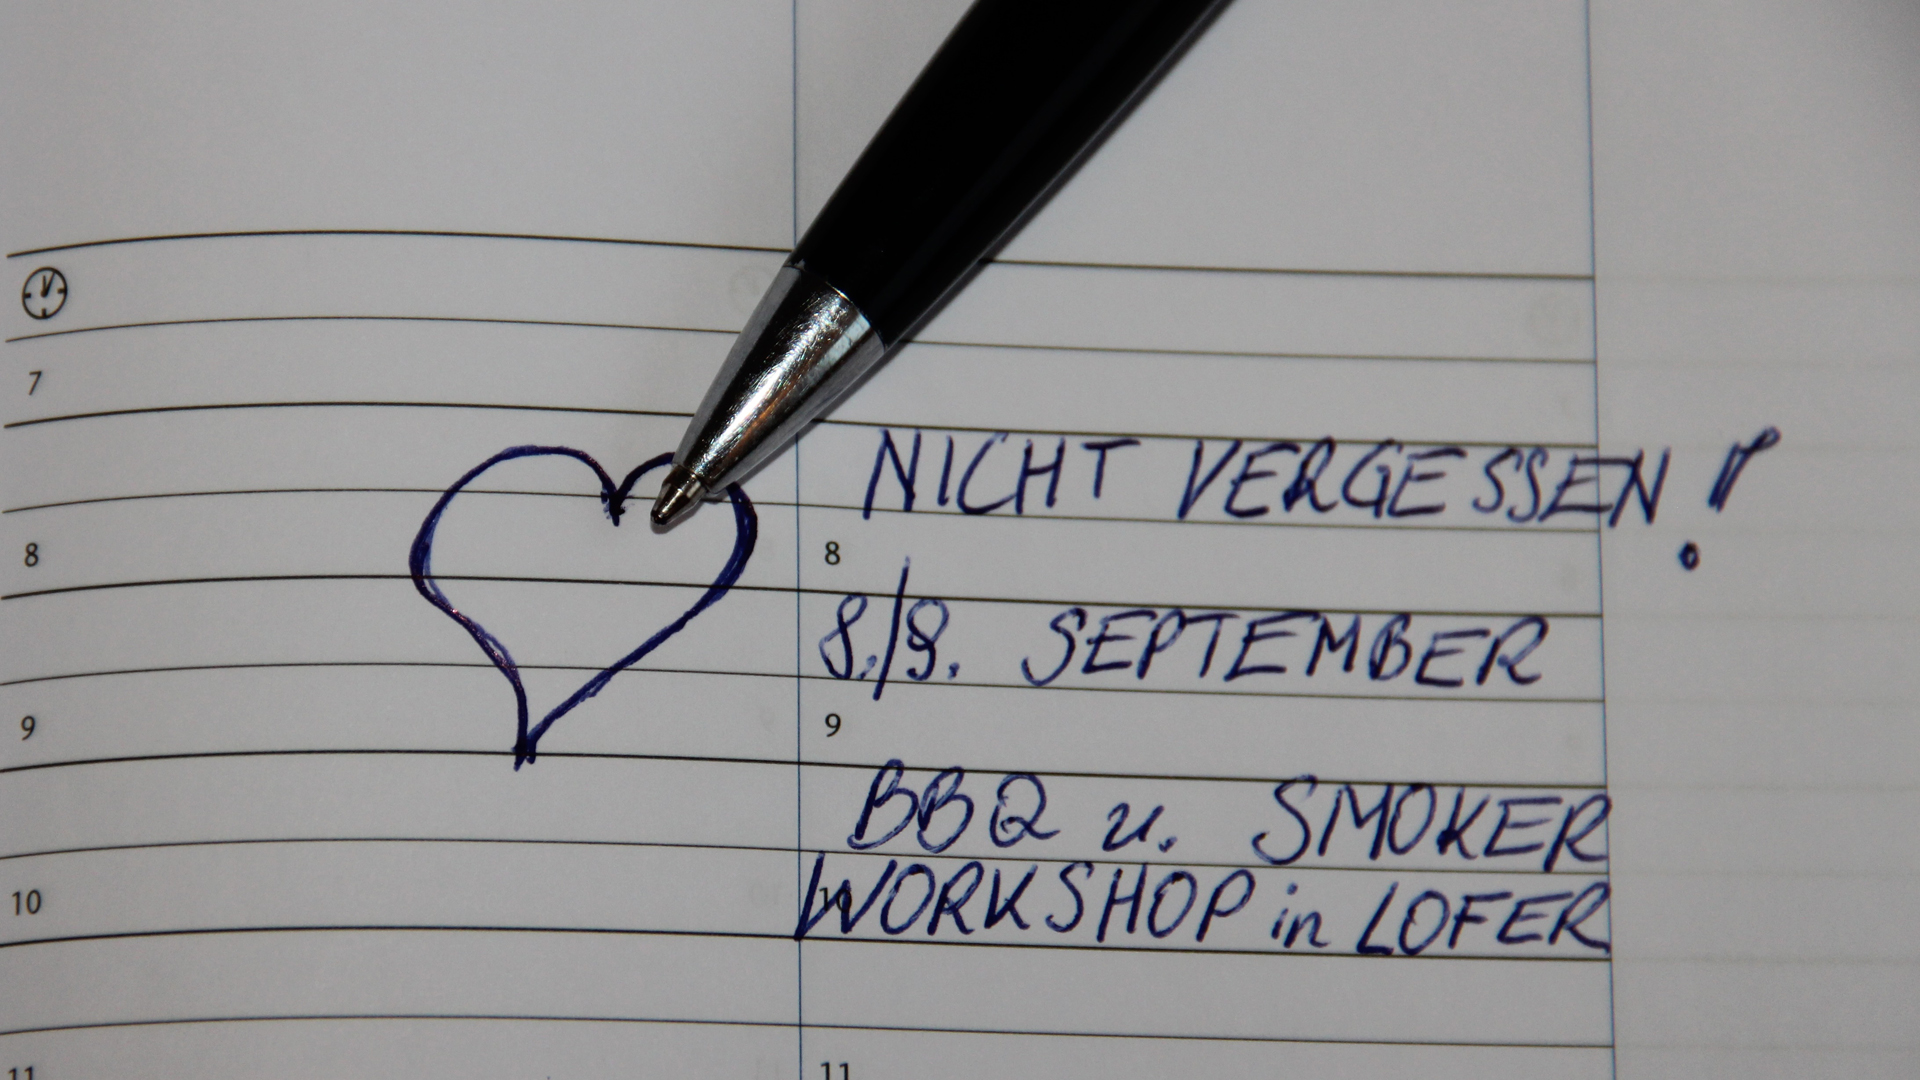 7
NICHT VERGESSEN!
8 8
8./9. SEPTEMBER
9 9
BBQ u. SMOKER
10 10 WORKSHOP in LOFER
11 11